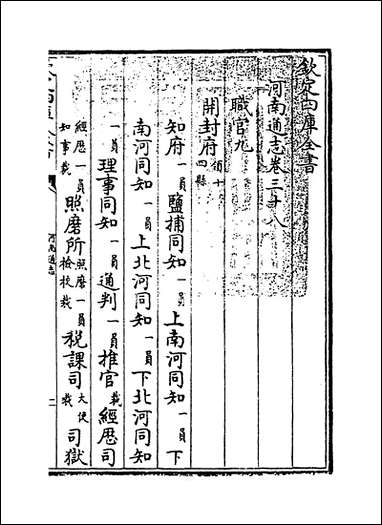 欽定四庫全書
河南通志卷三十八
職官九
開封府領十四縣
知府一員 鹽捕同知一員 上南河同知一員 下
南河同知一員 上北河同知一員 下北河同知
一員 理事同知一員 通判一員 推官裁 經歷司
經歷一員知事裁 照磨所照磨一員檢校裁 稅課司大使裁 司獄
河南通志